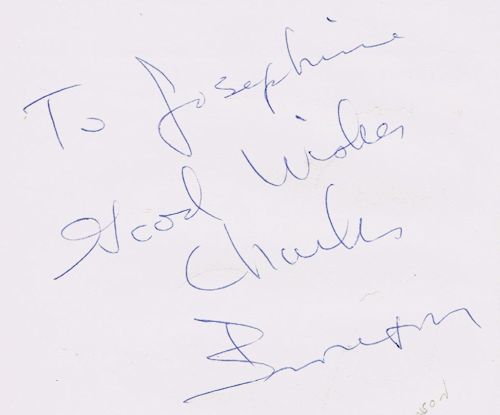 To Josephine
Good Wishes
Charles